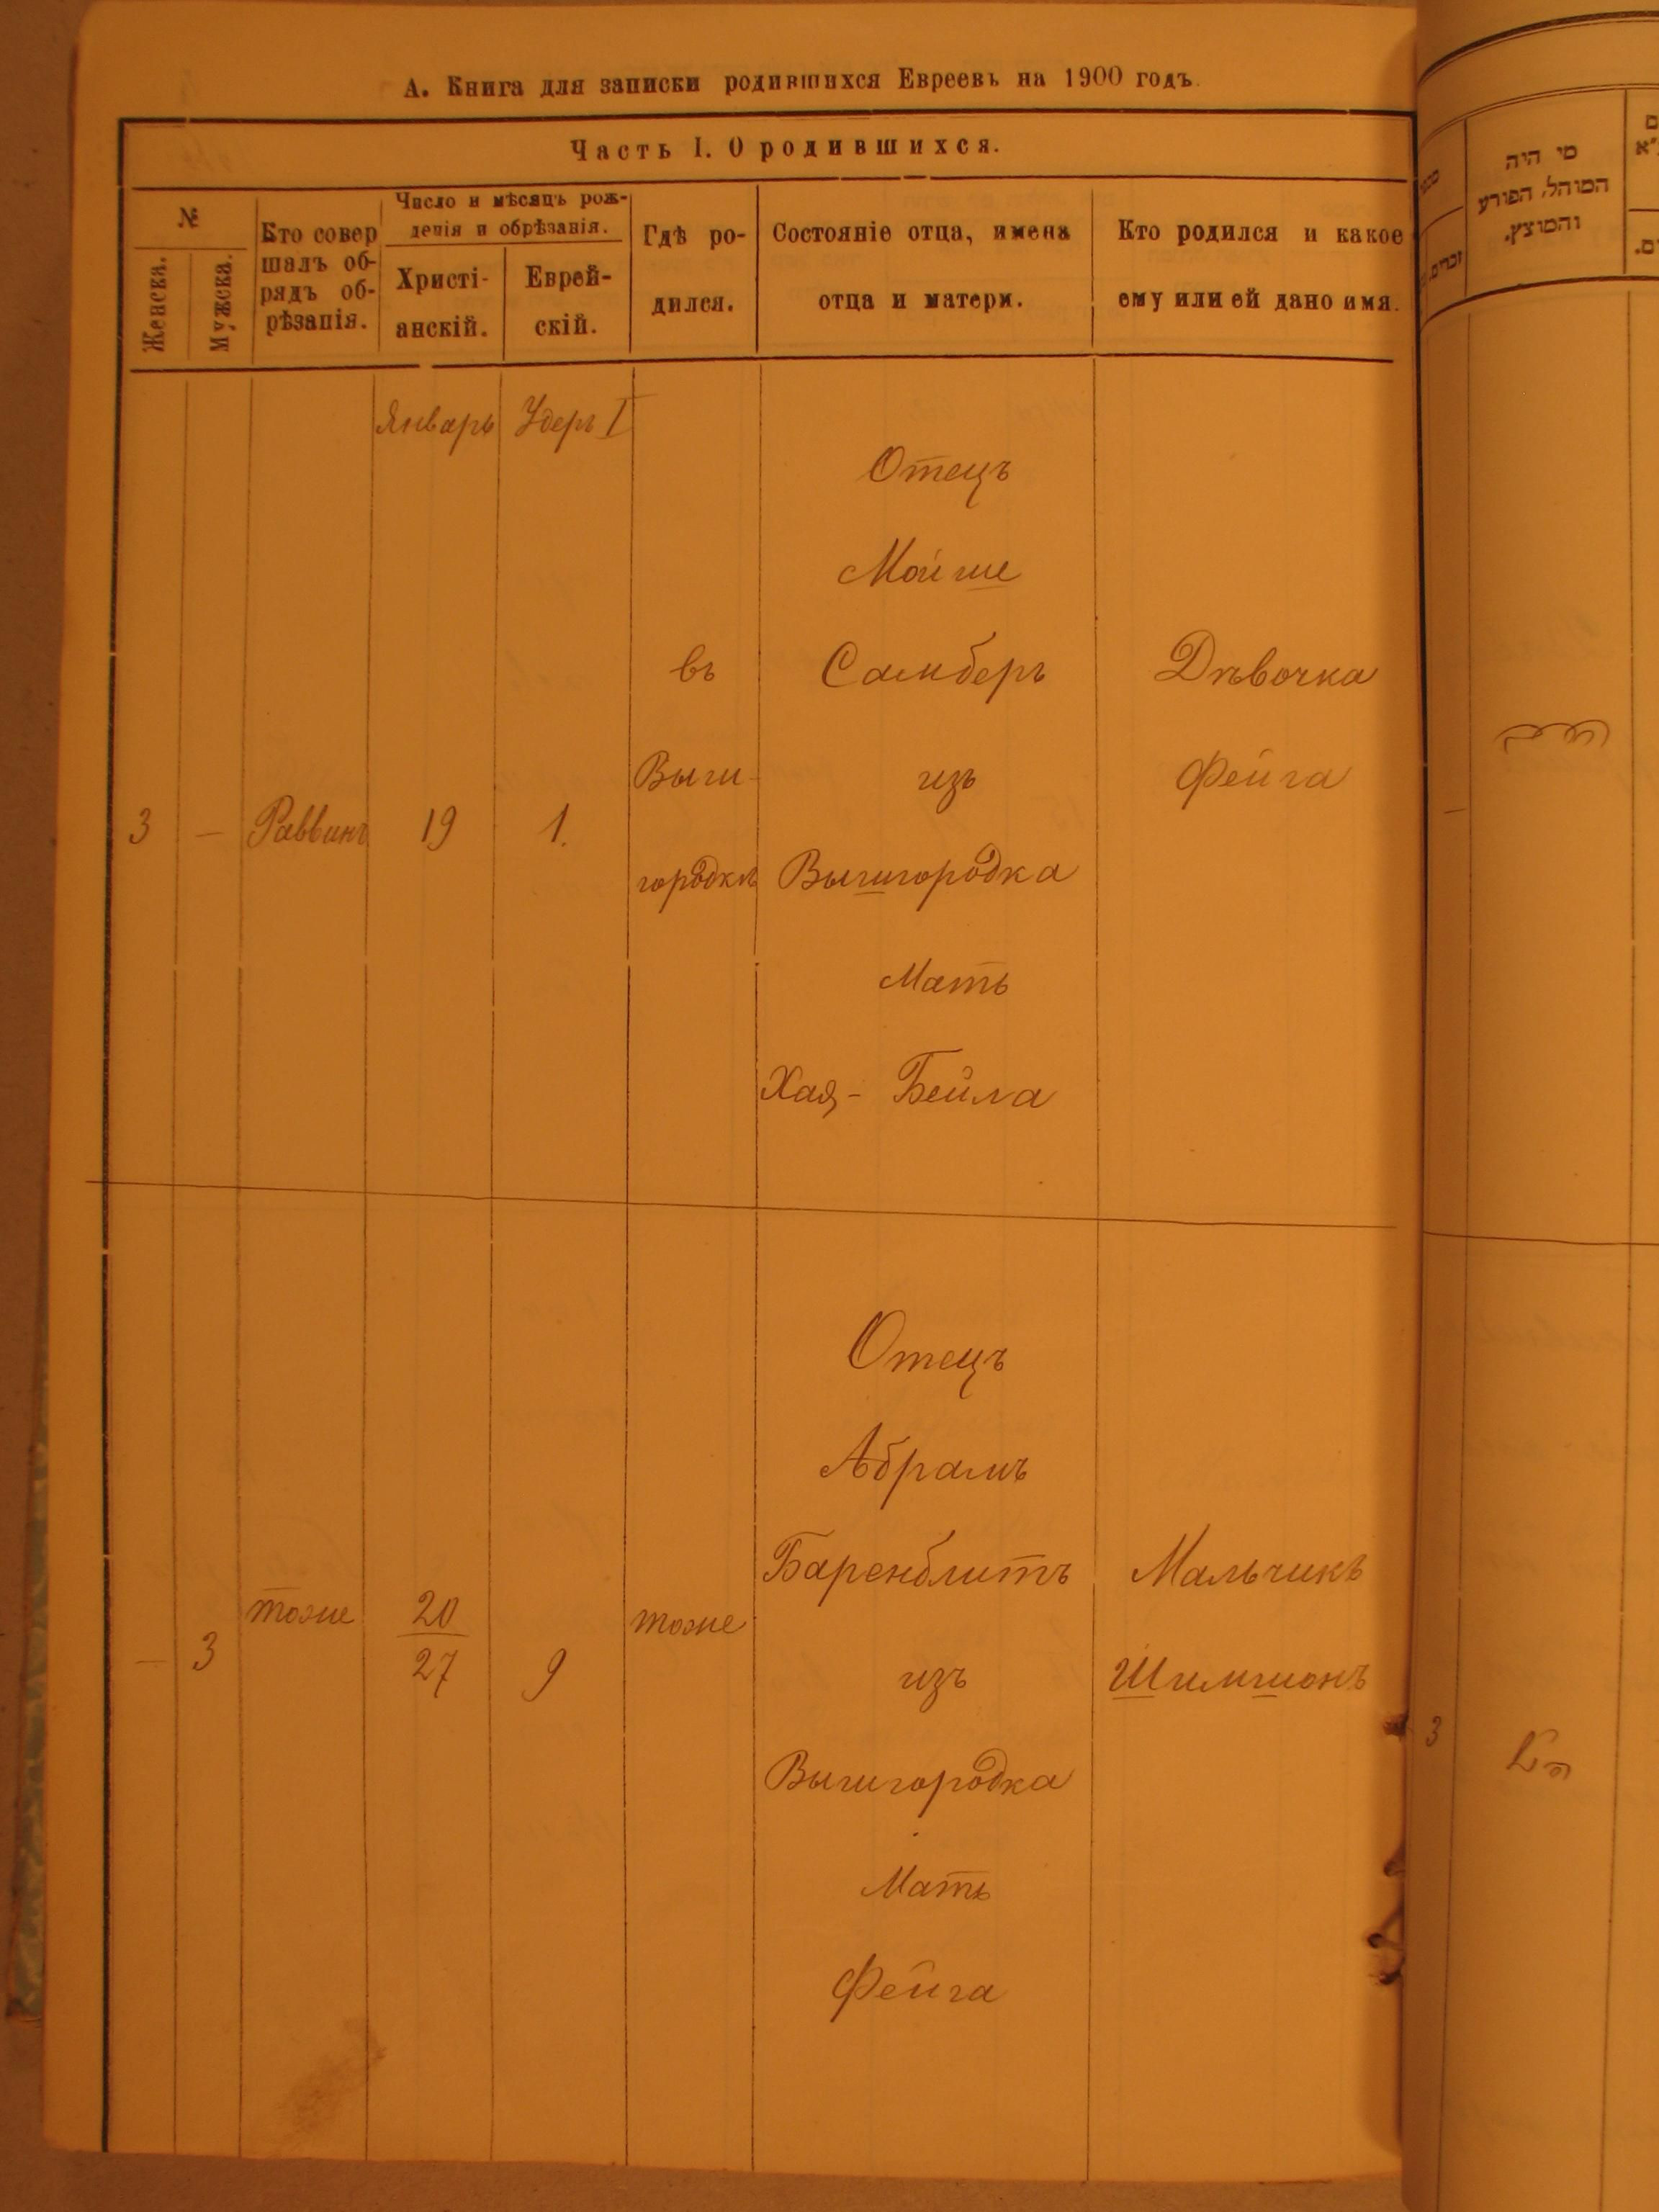 А. Книга для записки родившихся Евреевъ на 1900 годъ.
Часть I. О родившихся.
№
Женска.
Мужска.
Кто совер
шалъ об-
рядъ об-
рѣзанія.
Число и мѣсяцъ рож-
денія и обрѣзанія.
Христі-
анскій.
Еврей-
скій.
Гдѣ ро-
дился.
Состояніе отца, имена
отца и матери.
Кто родился и какое
ему или ей дано имя.
Январь
Удеръ I
3
—
Раввинъ
19
1.
въ
Выши-
городкѣ
Отецъ
Мойше
Самберъ
изъ
Вышгородка
Мать
Хая - Бейла
Дѣвочка
Фейга
—
3
тоже
20
27
9
тоже
Отецъ
Абрамъ
Баренблитъ
изъ
Вышгородка
Мать
Фейга
Мальчикъ
Шимшонъ
מי היה
המוהל, הפורע
והמוצץ.
—
3